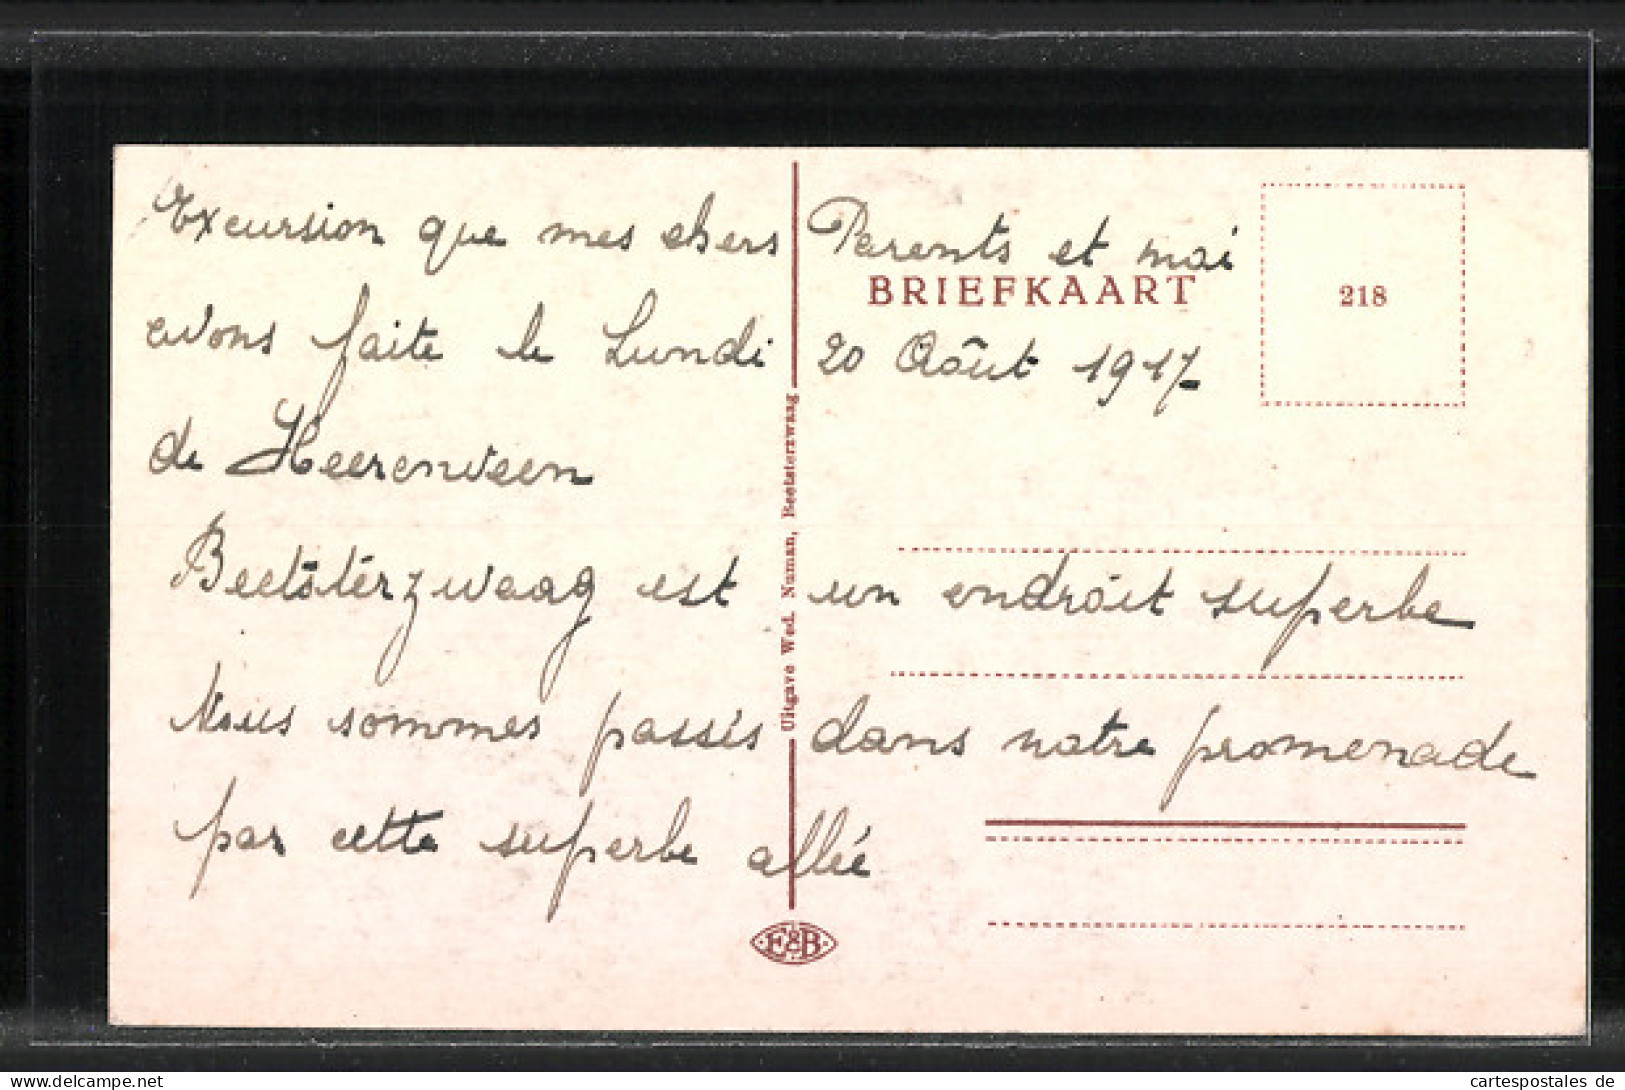 Excursion que mes chers Parents et moi
BRIEFKAART
218
avons faite le Lundi 20 Août 1917
de Heerenveen
Beetstérzwaag est un endroit superbe
Nous sommes passés dans notre promenade
par cette superbe allée
Uitgave Wed. Numan, Beetsterzwaag
E&B
cartespostales de